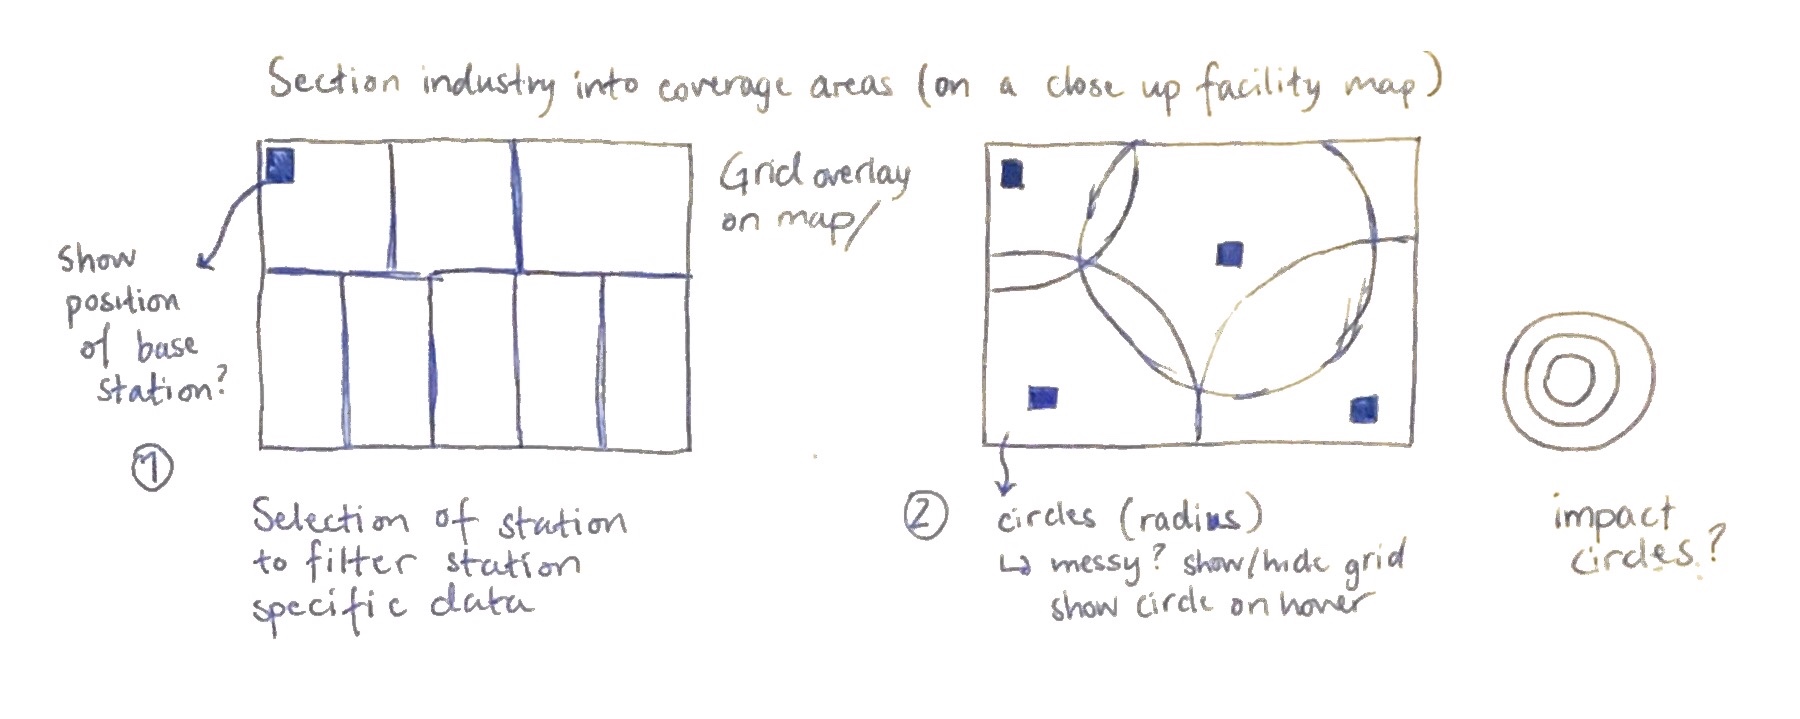 Section industry into coverage areas (on a close up facility map)
Show
position
of base
station?
Grid overlay
on map/
1
Selection of station
to filter station
specific data
2
circles (radius)
↳ messy? show/hide grid
show circle on hover
impact
circles?